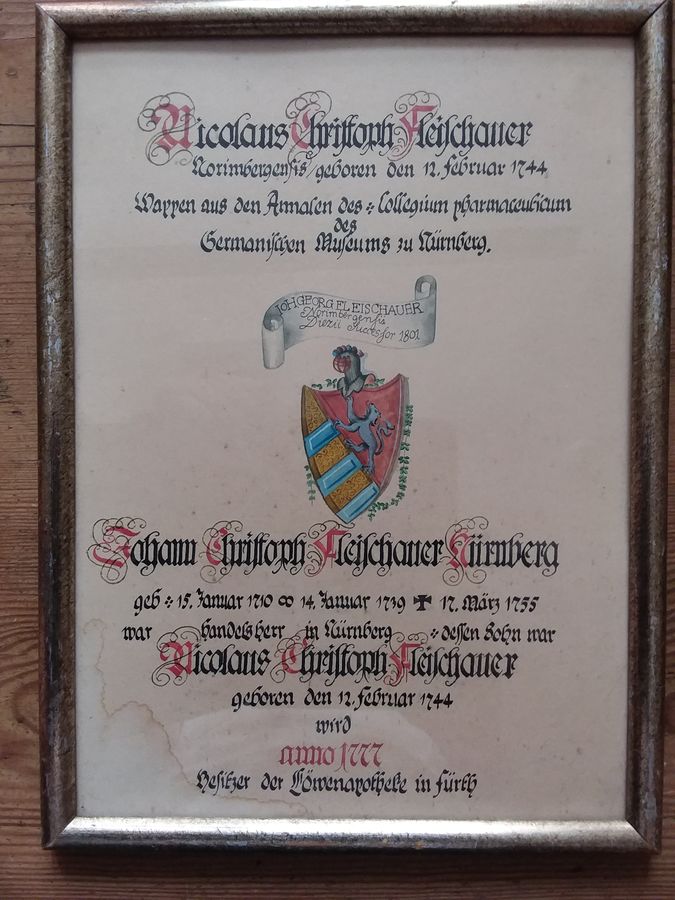 Nicolaus Christoph Fleischauer
Norimbergensis/geboren den 12. Februar 1744
Wappen aus den Annalen des : Collegium pharmaceuticum
des
Germanischen Museums zu Nürnberg.
JOH GEORG FLEISCHAUER
Norimbergensis
Diezii Succesfor 1801
Johann Christoph Fleischauer Nürnberg
geb : 15. Januar 1710 ∞ 14. Januar 1739 ✝ 17. März 1755
war Handelsherr in Nürnberg : dessen Sohn war
Nicolaus Christoph Fleischauer
geboren den 12. Februar 1744
wird
anno 1777
Besitzer der Löwenapotheke in Fürth